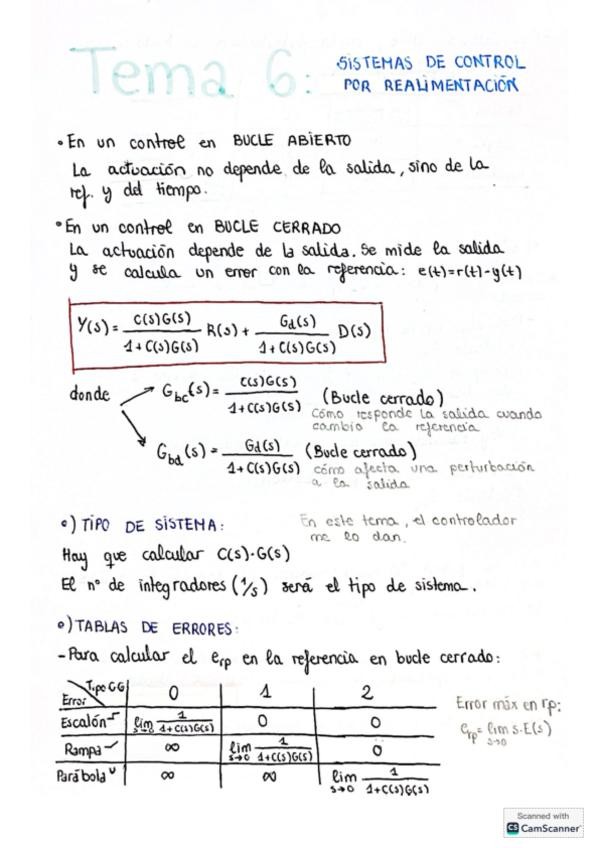 Tema 6: SISTEMAS DE CONTROL
POR REALIMENTACIÓN
• En un control en BUCLE ABIERTO
La actuación no depende de la salida, sino de la
ref. y del tiempo.
• En un control en BUCLE CERRADO
La actuación depende de la salida. Se mide la salida
y se calcula un error con la referencia: e(t)=r(t)-y(t)
Y(s) = C(s)G(s)/1+C(s)G(s) R(s) + Gd(s)/1+C(s)G(s) D(s)
donde Gbc(s) = C(s)G(s)/1+C(s)G(s) (Bucle cerrado)
cómo responde la salida cuando
cambio la referencia
Gbd(s) = Gd(s)/1+C(s)G(s) (Bucle cerrado)
cómo afecta una perturbación
a la salida
•) TIPO DE SISTEMA:
En este tema, el controlador
me lo dan.
Hay que calcular C(s)·G(s)
El nº de integradores (1/s) será el tipo de sistema.
•) TABLAS DE ERRORES:
- Para calcular el erp en la referencia en bucle cerrado:
Error Tipo CG 0 1 2
Escalón lim s→0 1/1+C(s)G(s) 0 0
Rampa ∞ lim s→0 1/1+C(s)G(s) 0
Parábola ∞ ∞ lim s→0 1/1+C(s)G(s)
Error máx en rp:
erp = lim s→0 s·E(s)
Scanned with
CS CamScanner